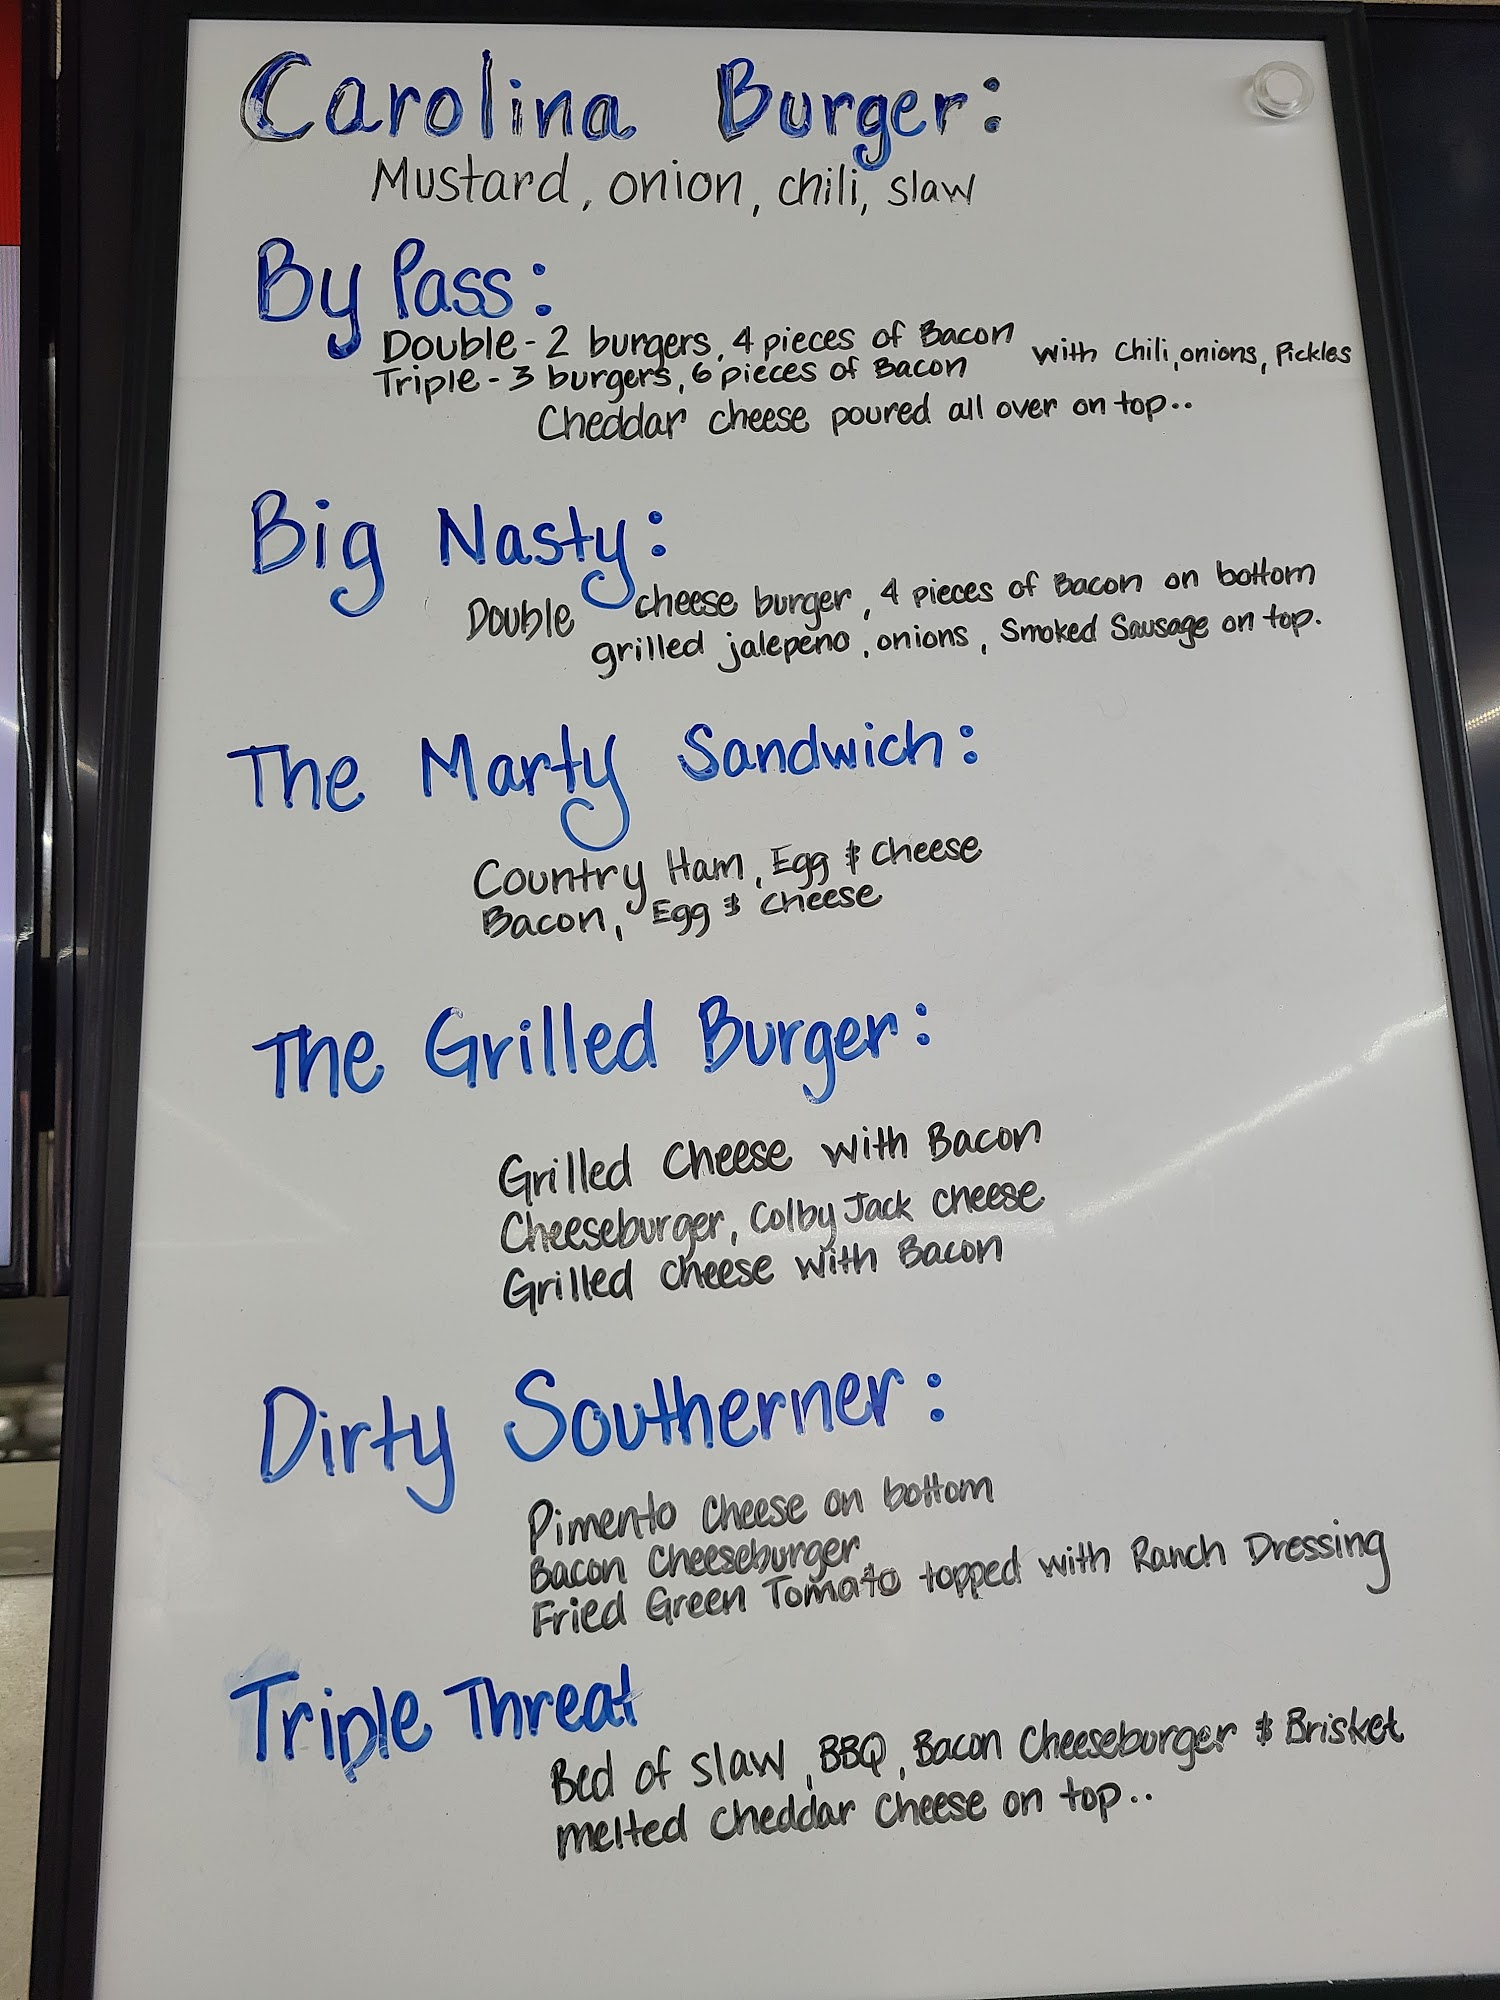 Carolina Burger:
Mustard, onion, chili, slaw
By Pass:
Double - 2 burgers, 4 pieces of Bacon with Chili, onions, Pickles
Triple - 3 burgers, 6 pieces of Bacon
Cheddar cheese poured all over on top..
Big Nasty:
Double cheese burger, 4 pieces of Bacon on bottom
grilled jalepeno, onions, Smoked Sausage on top.
The Marty Sandwich:
Country Ham, Egg & cheese
Bacon, Egg & cheese
The Grilled Burger:
Grilled Cheese with Bacon
Cheeseburger, Colby Jack cheese
Grilled cheese with Bacon
Dirty Southerner:
Pimento cheese on bottom
Bacon Cheeseburger
Fried Green Tomato topped with Ranch Dressing
Triple Threat
Bed of slaw, BBQ, Bacon Cheeseburger & Brisket
melted cheddar cheese on top..